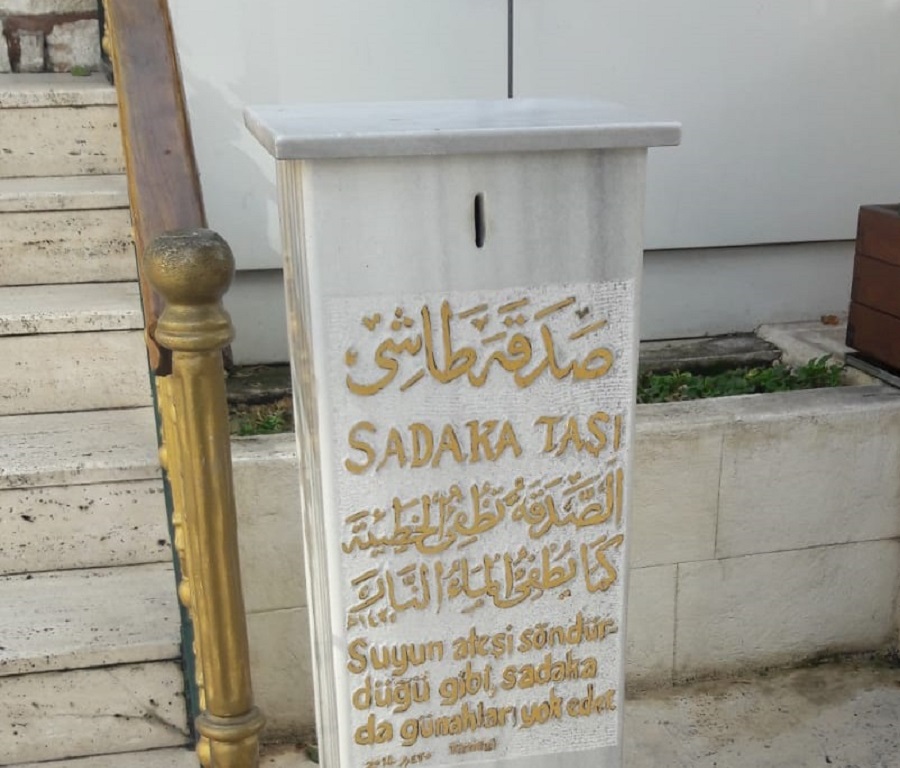 صدقه طاشى
SADAKA TAŞI
الصَّدَقَةُ تُطْفِئُ الْخَطِيئَةَ
كَمَا يُطْفِئُ الْمَاءُ النَّارَ
Suyun ateşi söndür-
düğü gibi, sadaka
da günahları yok eder.